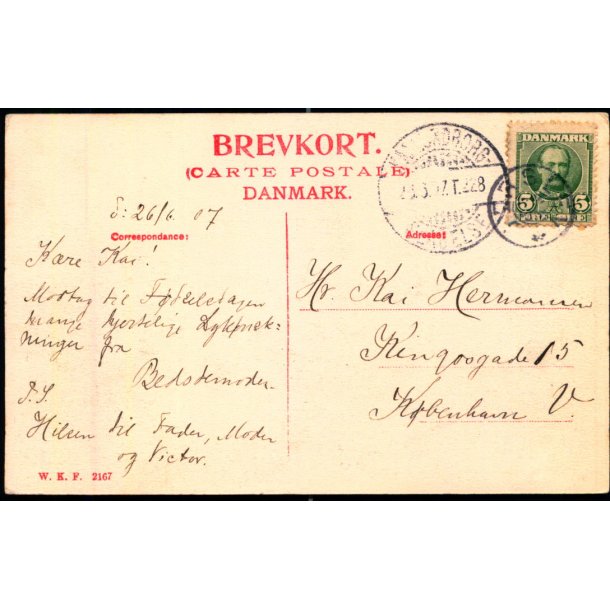 BREVKORT.
(CARTE POSTALE)
DANMARK.
DANMARK
5 5
d: 26/6 07
Correspondance:
Adresse:
Kære Kai!
Modtag til Fødselsdagen
mange hjertelige Lykønsk-
ninger fra
Bedstemoder.
P.S.
Hilsen til Fader, Moder
og Victor.
Hr. Kai Hermansen
Kingosgade 15
København V.
W. K. F. 2167